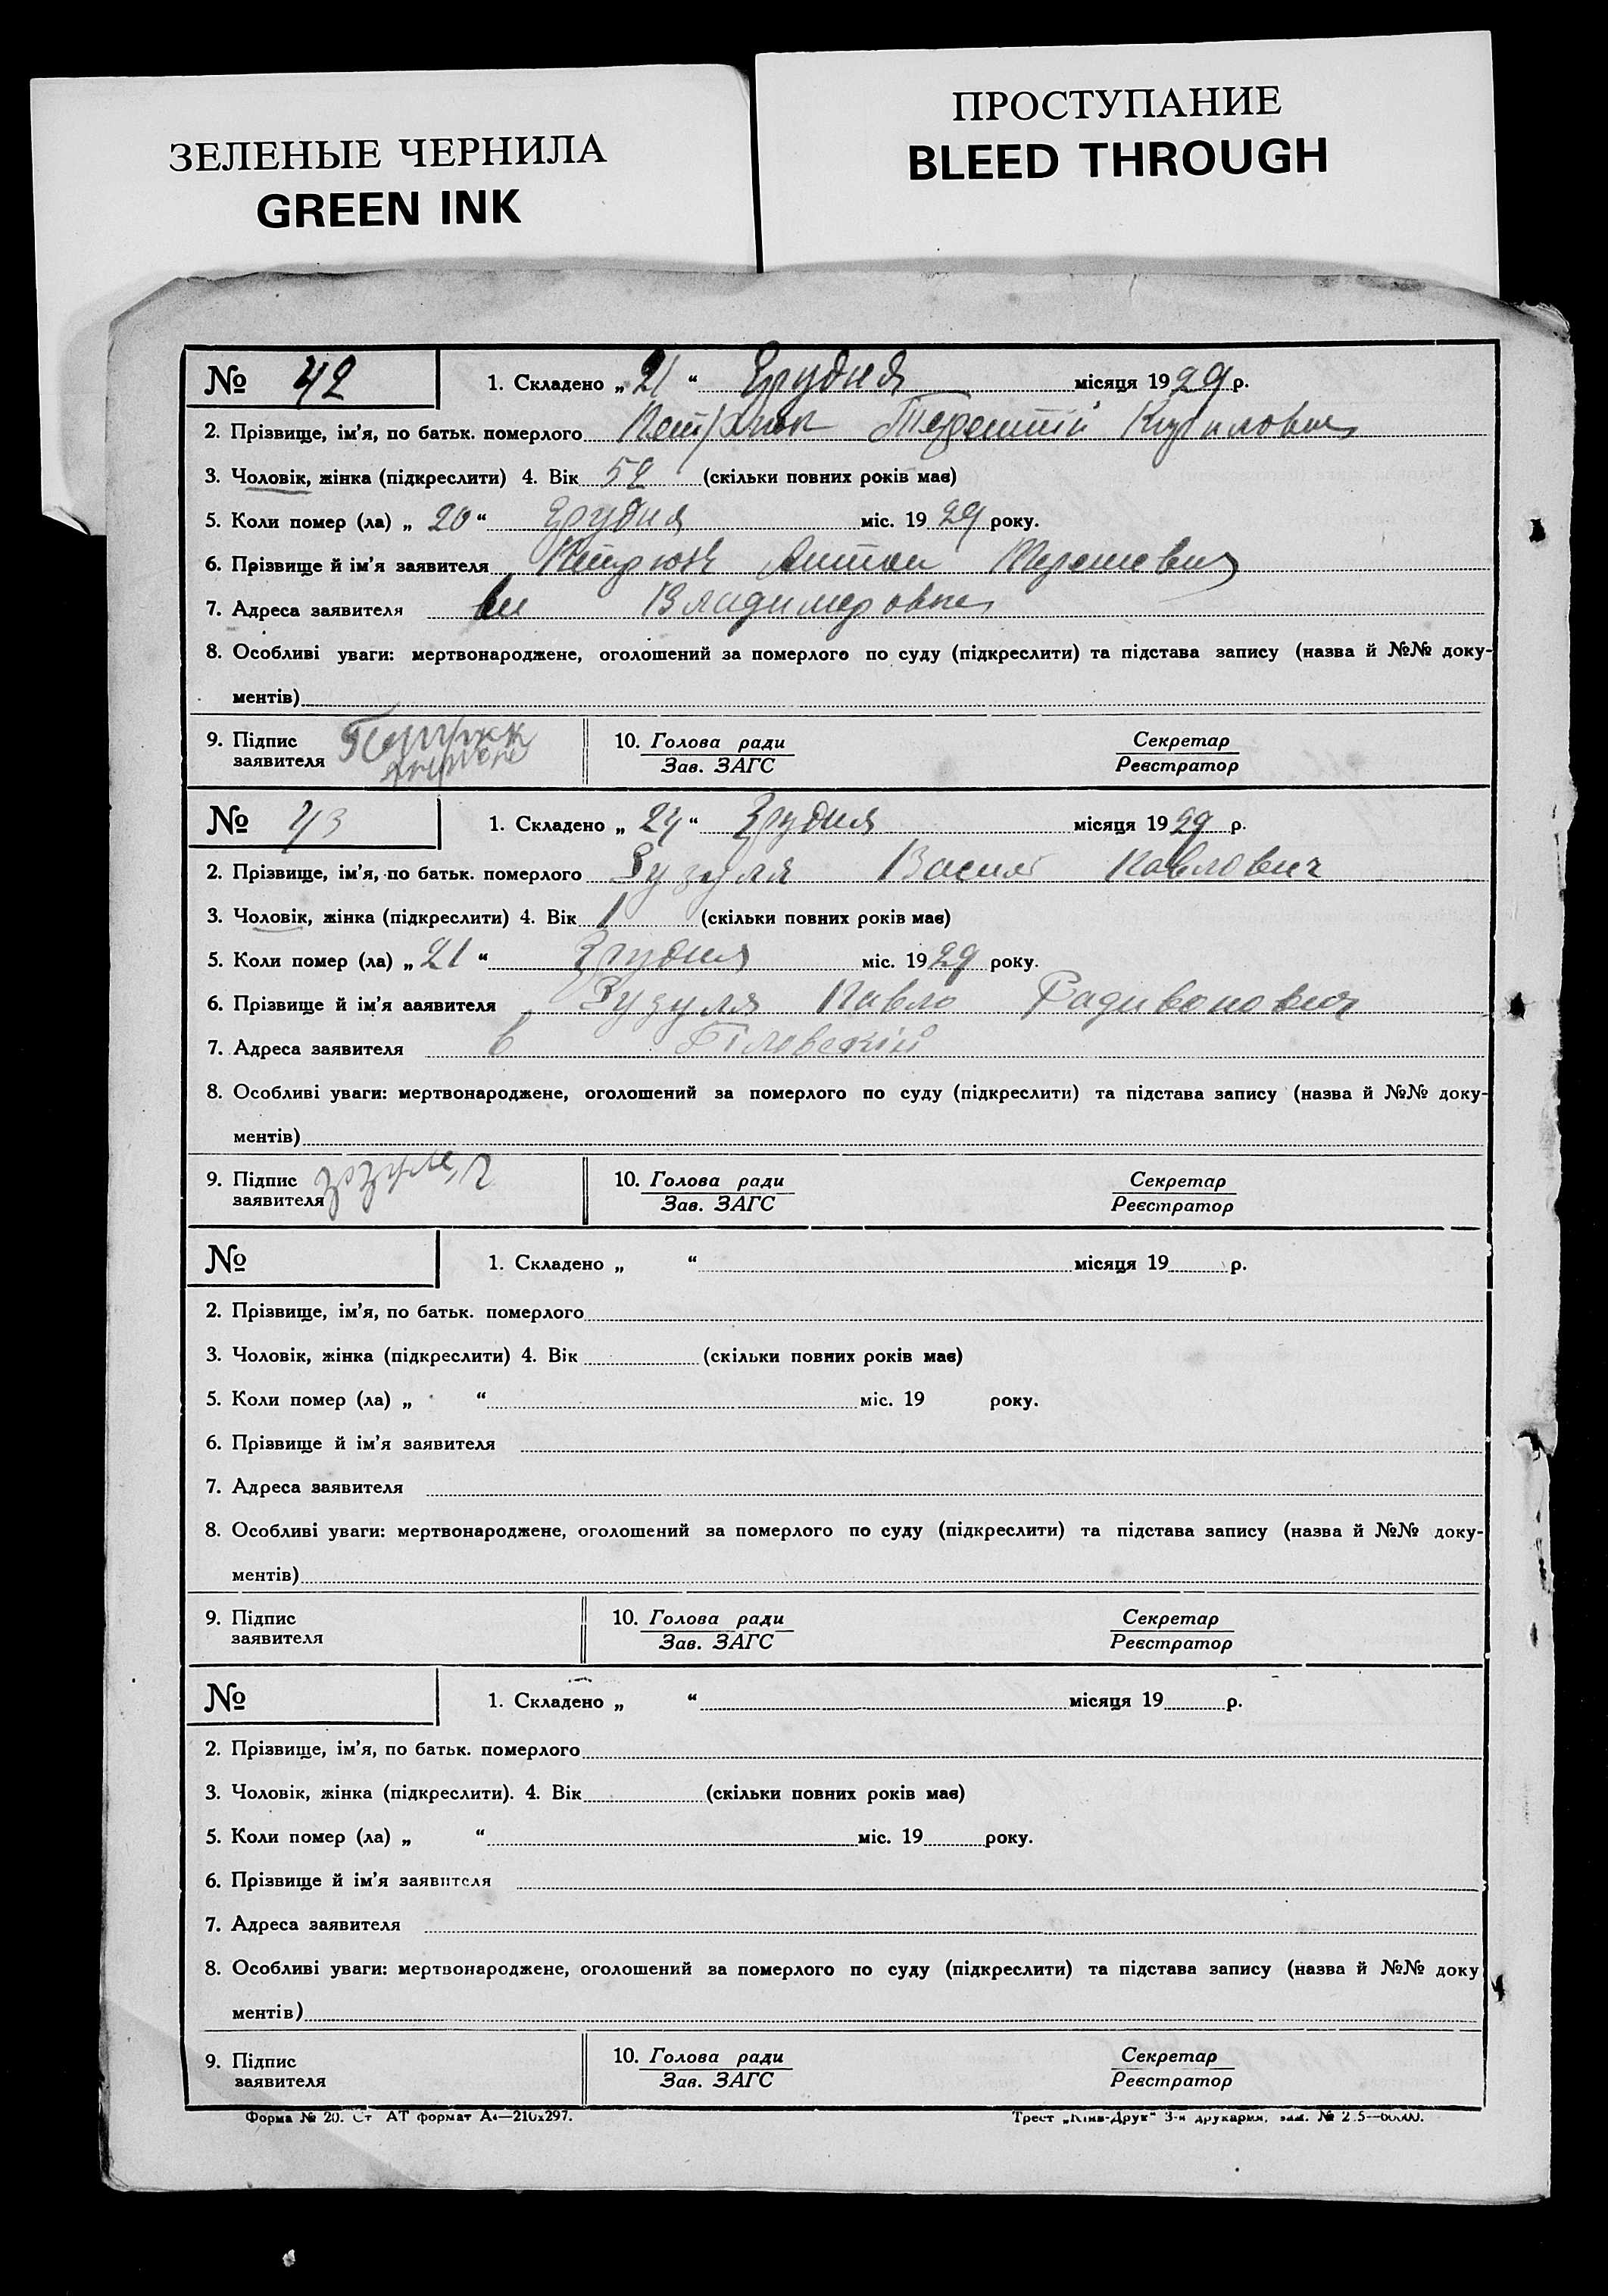 ЗЕЛЕНЫЕ ЧЕРНИЛА
GREEN INK
ПРОСТУПАНИЕ
BLEED THROUGH
№ 42 1. Складено „ 21 “ Грудня місяця 1929 р.
2. Прізвище, ім'я, по батьк. померлого Петрюк Терентій Кирилович
3. Чоловік, жінка (підкреслити) 4. Вік 52 (скільки повних років має)
5. Коли помер (ла) „ 20 “ Грудня міс. 19 29 року.
6. Прізвище й ім'я заявителя Петрюк Антон
7. Адреса заявителя
8. Особливі уваги: мертвонароджене, оголошений за померлого по суду (підкреслити) та підстава запису (назва й №№ доку-
ментів)
9. Підпис заявителя 10. Голова ради Зав. ЗАГС Секретар Реєстратор
№ 43 1. Складено „ 24 “ Грудня місяця 1929 р.
2. Прізвище, ім'я, по батьк. померлого Зузуля Василь Павлович
3. Чоловік, жінка (підкреслити) 4. Вік 1 (скільки повних років має)
5. Коли помер (ла) „ 21 “ Грудня міс. 1929 року.
6. Прізвище й ім'я заявителя Зузуля Павло Радивонович
7. Адреса заявителя в
8. Особливі уваги: мертвонароджене, оголошений за померлого по суду (підкреслити) та підстава запису (назва й №№ доку-
ментів)
9. Підпис заявителя 10. Голова ради Зав. ЗАГС Секретар Реєстратор
№ 1. Складено „ “ місяця 19 р.
2. Прізвище, ім'я, по батьк. померлого
3. Чоловік, жінка (підкреслити) 4. Вік (скільки повних років має)
5. Коли помер (ла) „ “ міс. 19 року.
6. Прізвище й ім'я заявителя
7. Адреса заявителя
8. Особливі уваги: мертвонароджене, оголошений за померлого по суду (підкреслити) та підстава запису (назва й №№ доку-
ментів)
9. Підпис заявителя 10. Голова ради Зав. ЗАГС Секретар Реєстратор
№ 1. Складено „ “ місяця 19 р.
2. Прізвище, ім'я, по батьк. померлого
3. Чоловік, жінка (підкреслити). 4. Вік (скільки повних років має)
5. Коли помер (ла) „ “ міс. 19 року.
6. Прізвище й ім'я заявителя
7. Адреса заявителя
8. Особливі уваги: мертвонароджене, оголошений за померлого по суду (підкреслити) та підстава запису (назва й №№ доку
ментів)
9. Підпис заявителя 10. Голова ради Зав. ЗАГС Секретар Реєстратор
Форма № 20. Ст АТ формат А4—210x297. Трест „Київ-Друк“ 3-я друкарня, зам. №